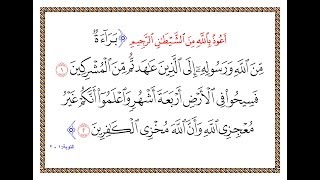 أَعُوذُ بِاللَّهِ مِنَ الشَّيْطَٰنِ الرَّجِيمِ ﴿ بَرَآءَةٌ
مِّنَ ٱللَّهِ وَرَسُولِهِۦٓ إِلَى ٱلَّذِينَ عَٰهَدتُّم مِّنَ ٱلْمُشْرِكِينَ ١
فَسِيحُوا۟ فِى ٱلْأَرْضِ أَرْبَعَةَ أَشْهُرٍ وَٱعْلَمُوٓا۟ أَنَّكُمْ غَيْرُ
مُعْجِزِى ٱللَّهِ وَأَنَّ ٱللَّهَ مُخْزِى ٱلْكَٰفِرِينَ ٢ ﴾
التوبة: ١ - ٢